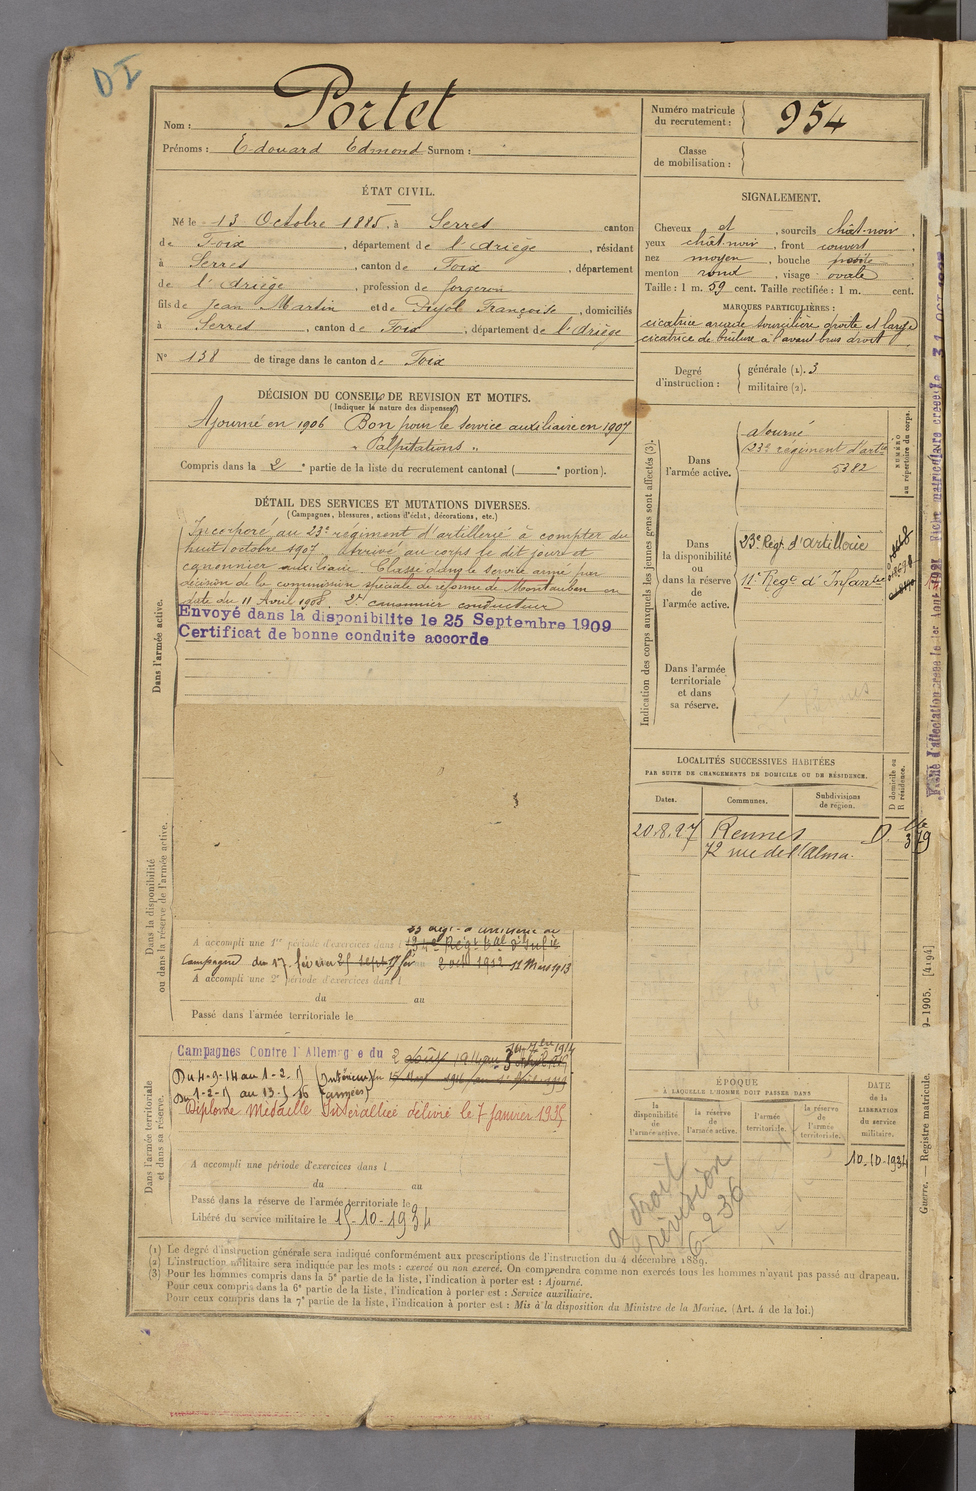 DI
Nom : Portet
Prénoms : Edouard Edmond Surnom :
ÉTAT CIVIL.
Né le 13 Octobre 1885, à Serres canton
de Foix, département de l'Ariège, résidant
à Serres, canton de Foix, département
de l'Ariège, profession de forgeron
fils de Jean Martin et de Pujol Françoise, domiciliés
à Serres, canton de Foix, département de l'Ariège
N° 138 de tirage dans le canton de Foix
DÉCISION DU CONSEIL DE REVISION ET MOTIFS.
(Indiquer la nature des dispenses)
Ajourné en 1906 Bon pour le service auxiliaire en 1907
" Palpitations "
Compris dans la 2e partie de la liste du recrutement cantonal ( e portion).
DÉTAIL DES SERVICES ET MUTATIONS DIVERSES.
(Campagnes, blessures, actions d'éclat, décorations, etc.)
Dans l'armée active.
Incorporé au 23e régiment d'artillerie à compter du
huit octobre 1907. Arrivé au corps le dit jour et
canonnier auxiliaire. Classé dans le service armé par
décision de la commission spéciale de réforme de Montauban en
date du 11 Avril 1908. 2e canonnier conducteur
Envoyé dans la disponibilite le 25 Septembre 1909
Certificat de bonne conduite accorde
Dans la disponibilité
ou dans la réserve de l'armée active.
A accompli une 1re période d'exercices dans l
Campagne du 17 février 25 sept 17 fév au 2 oct 1912 11 Mars 1913
A accompli une 2e période d'exercices dans l
du au
Passé dans l'armée territoriale le
Dans l'armée territoriale
et dans sa réserve.
Campagnes Contre l'Allemagne du 2 août 1914 au
Du 4-9-14 au 1-2-15 (Intérieur)
Du 1-2-15 au 13-5-16 (armées)
Diplome Médaille Interalliée délivré le 7 janvier 1935
A accompli une période d'exercices dans l
du au
Passé dans la réserve de l'armée territoriale le
Libéré du service militaire le 15-10-1934
Numéro matricule
du recrutement : 954
Classe
de mobilisation :
SIGNALEMENT.
Cheveux et, sourcils chât-noir,
yeux chât-noir, front couvert,
nez moyen, bouche petite,
menton rond, visage ovale
Taille : 1 m. 59 cent. Taille rectifiée : 1 m. cent.
MARQUES PARTICULIÈRES :
cicatrice arcade sourcilière droite et large
cicatrice de brûlure à l'avant bras droit
Degré
d'instruction :
générale (1). 3
militaire (2).
Indication des corps auxquels les jeunes gens sont affectés (3).
NUMÉRO
au répertoire du corps.
Dans
l'armée active.
ajourné
23e régiment d'artie
5382
Dans
la disponibilité
ou
dans la réserve
de
l'armée active.
23e Regt d'artillerie
11e Regt d'Infantie
Dans l'armée
territoriale
et dans
sa réserve.
LOCALITÉS SUCCESSIVES HABITÉES
PAR SUITE DE CHANGEMENTS DE DOMICILE OU DE RÉSIDENCE.
Dates.
Communes.
Subdivisions
de région.
D domicile ou
R résidence.
20.8.27 Rennes D.
72 rue de l'Alma
ÉPOQUE
À LAQUELLE L'HOMME DOIT PASSER DANS
la
disponibilité
de
l'armée active.
la réserve
de
l'armée active.
l'armée
territoriale.
la réserve
de
l'armée
territoriale.
DATE
de la
LIBÉRATION
du service
militaire.
10-10-1934
a droit
révision
6-2-36
Guerre. — Registre matricule.
9-1905. [4194]
(1) Le degré d'instruction générale sera indiqué conformément aux prescriptions de l'instruction du 4 décembre 1889.
(2) L'instruction militaire sera indiquée par les mots : exercé ou non exercé. On comprendra comme non exercés tous les hommes n'ayant pas passé au drapeau.
(3) Pour les hommes compris dans la 5e partie de la liste, l'indication à porter est : Ajourné.
Pour ceux compris dans la 6e partie de la liste, l'indication à porter est : Service auxiliaire.
Pour ceux compris dans la 7e partie de la liste, l'indication à porter est : Mis à la disposition du Ministre de la Marine. (Art. 4 de la loi.)